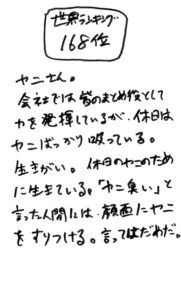 世界ランキング
168位
ヤニさん。
会社では皆のまとめ役として
力を発揮しているが、休日は
ヤニばっかり吸っている。
生きがい。休日のヤニのため
に生きている。「ヤニ臭い」と
言った人間には、顔面にヤニ
をすりつける。言ってはだめだ。